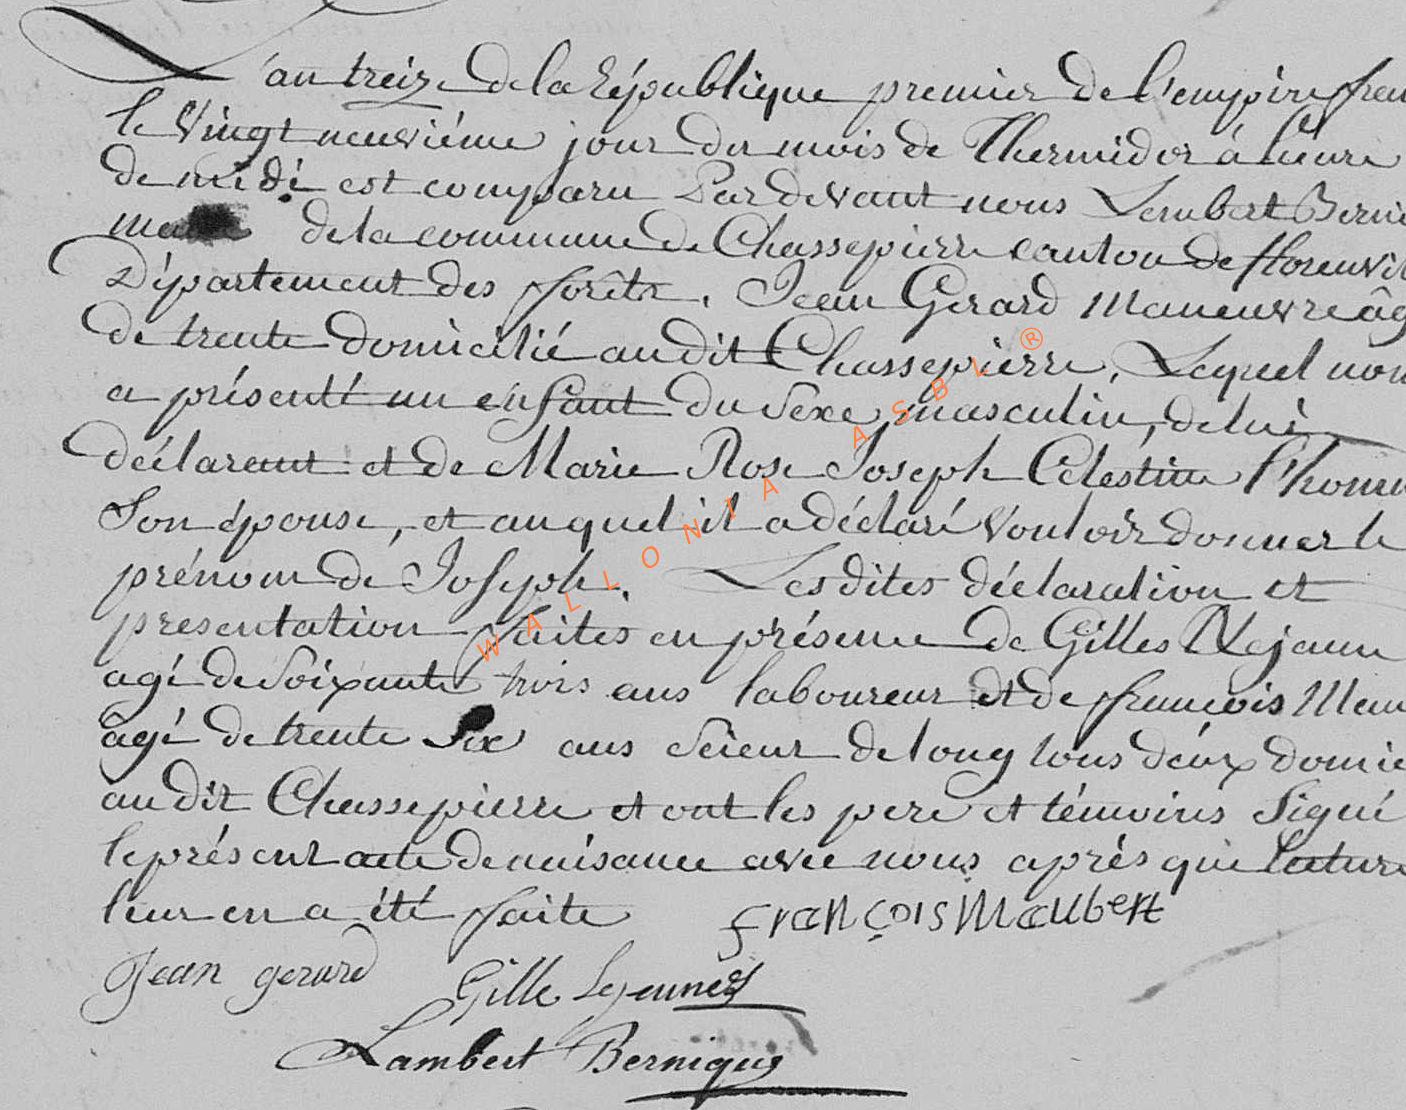 L'an treize de la République premier de l'empire fran
le vingt neuviéme jour du mois de Thermidor à l'heure
de midi est comparu Pardevant nous Lambert Berni
de la commune de Chassepierre canton de florenvil
Département des forêts. Jean Gerard Maneuvre âg
de trente domicilié audit Chassepierre, Lequel nou
a présenté un enfant du Sexe masculin, de lui
déclarant et de Marie Rose Joseph Célestine Thom
Son épouse, et auquel il a déclaré vouloir donner le
prénom de Joseph. Lesdites déclaration et
presentation faites en présence de Gilles Lejeune
agé de Soixante trois ans laboureur et de françois Mau
agé de trente Six ans Scieur de long tous deux domici
audit Chassepierre et ont les pere et témoins Signé
le présent acte de naisance avec nous après que lecture
leur en a été faite françois Maubert
Jean gerard Gille Lejeune
Lambert Bernique
WALLONIA ASBL ®